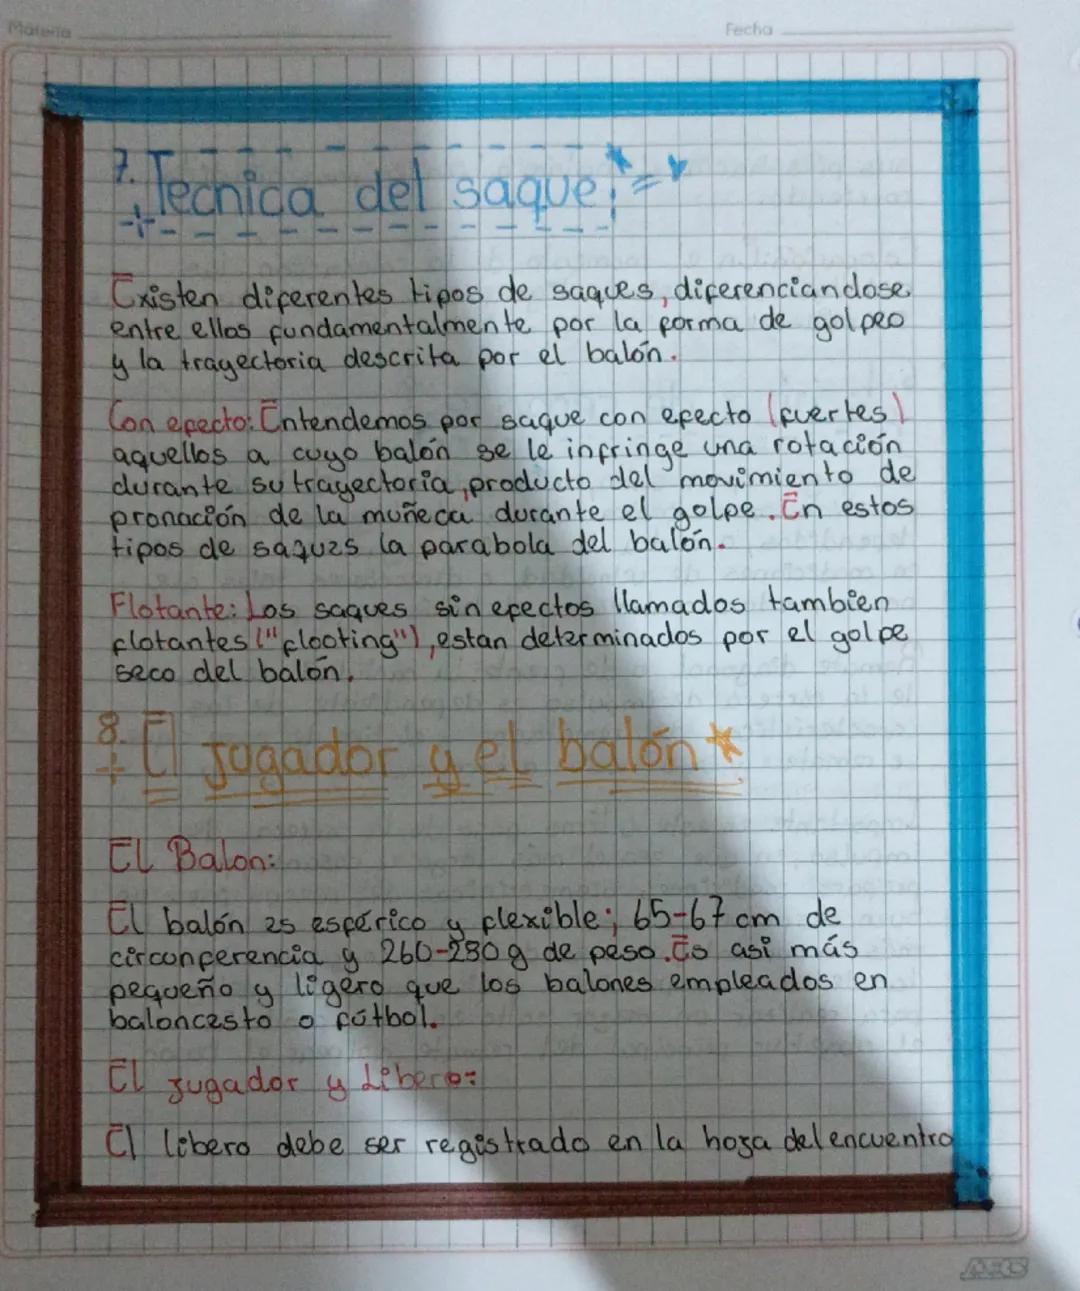 Materia
Fecha
7. Tecnica del saque:
Existen diferentes tipos de saques, diferenciandose
entre ellos fundamentalmente por la forma de golpeo
y la trayectoria descrita por el balón.
Con efecto: Entendemos por saque con efecto (fuertes)
aquellos a cuyo balón se le infringe una rotación
durante su trayectoria, producto del movimiento de
pronación de la muñeca durante el golpe. En estos
tipos de saques la parabola del balón.
Flotante: Los saques sin efectos llamados tambien
flotantes ("flooting"), estan determinados por el golpe
seco del balón.
8. El jugador y el balón
El Balon:
El balón es esférico y flexible; 65-67 cm de
circonferencia y 260-280g de peso. Es asi más
pequeño y ligero que los balones empleados en
baloncesto o fútbol.
El jugador y Libero:
El libero debe ser registrado en la hoja del encuentro